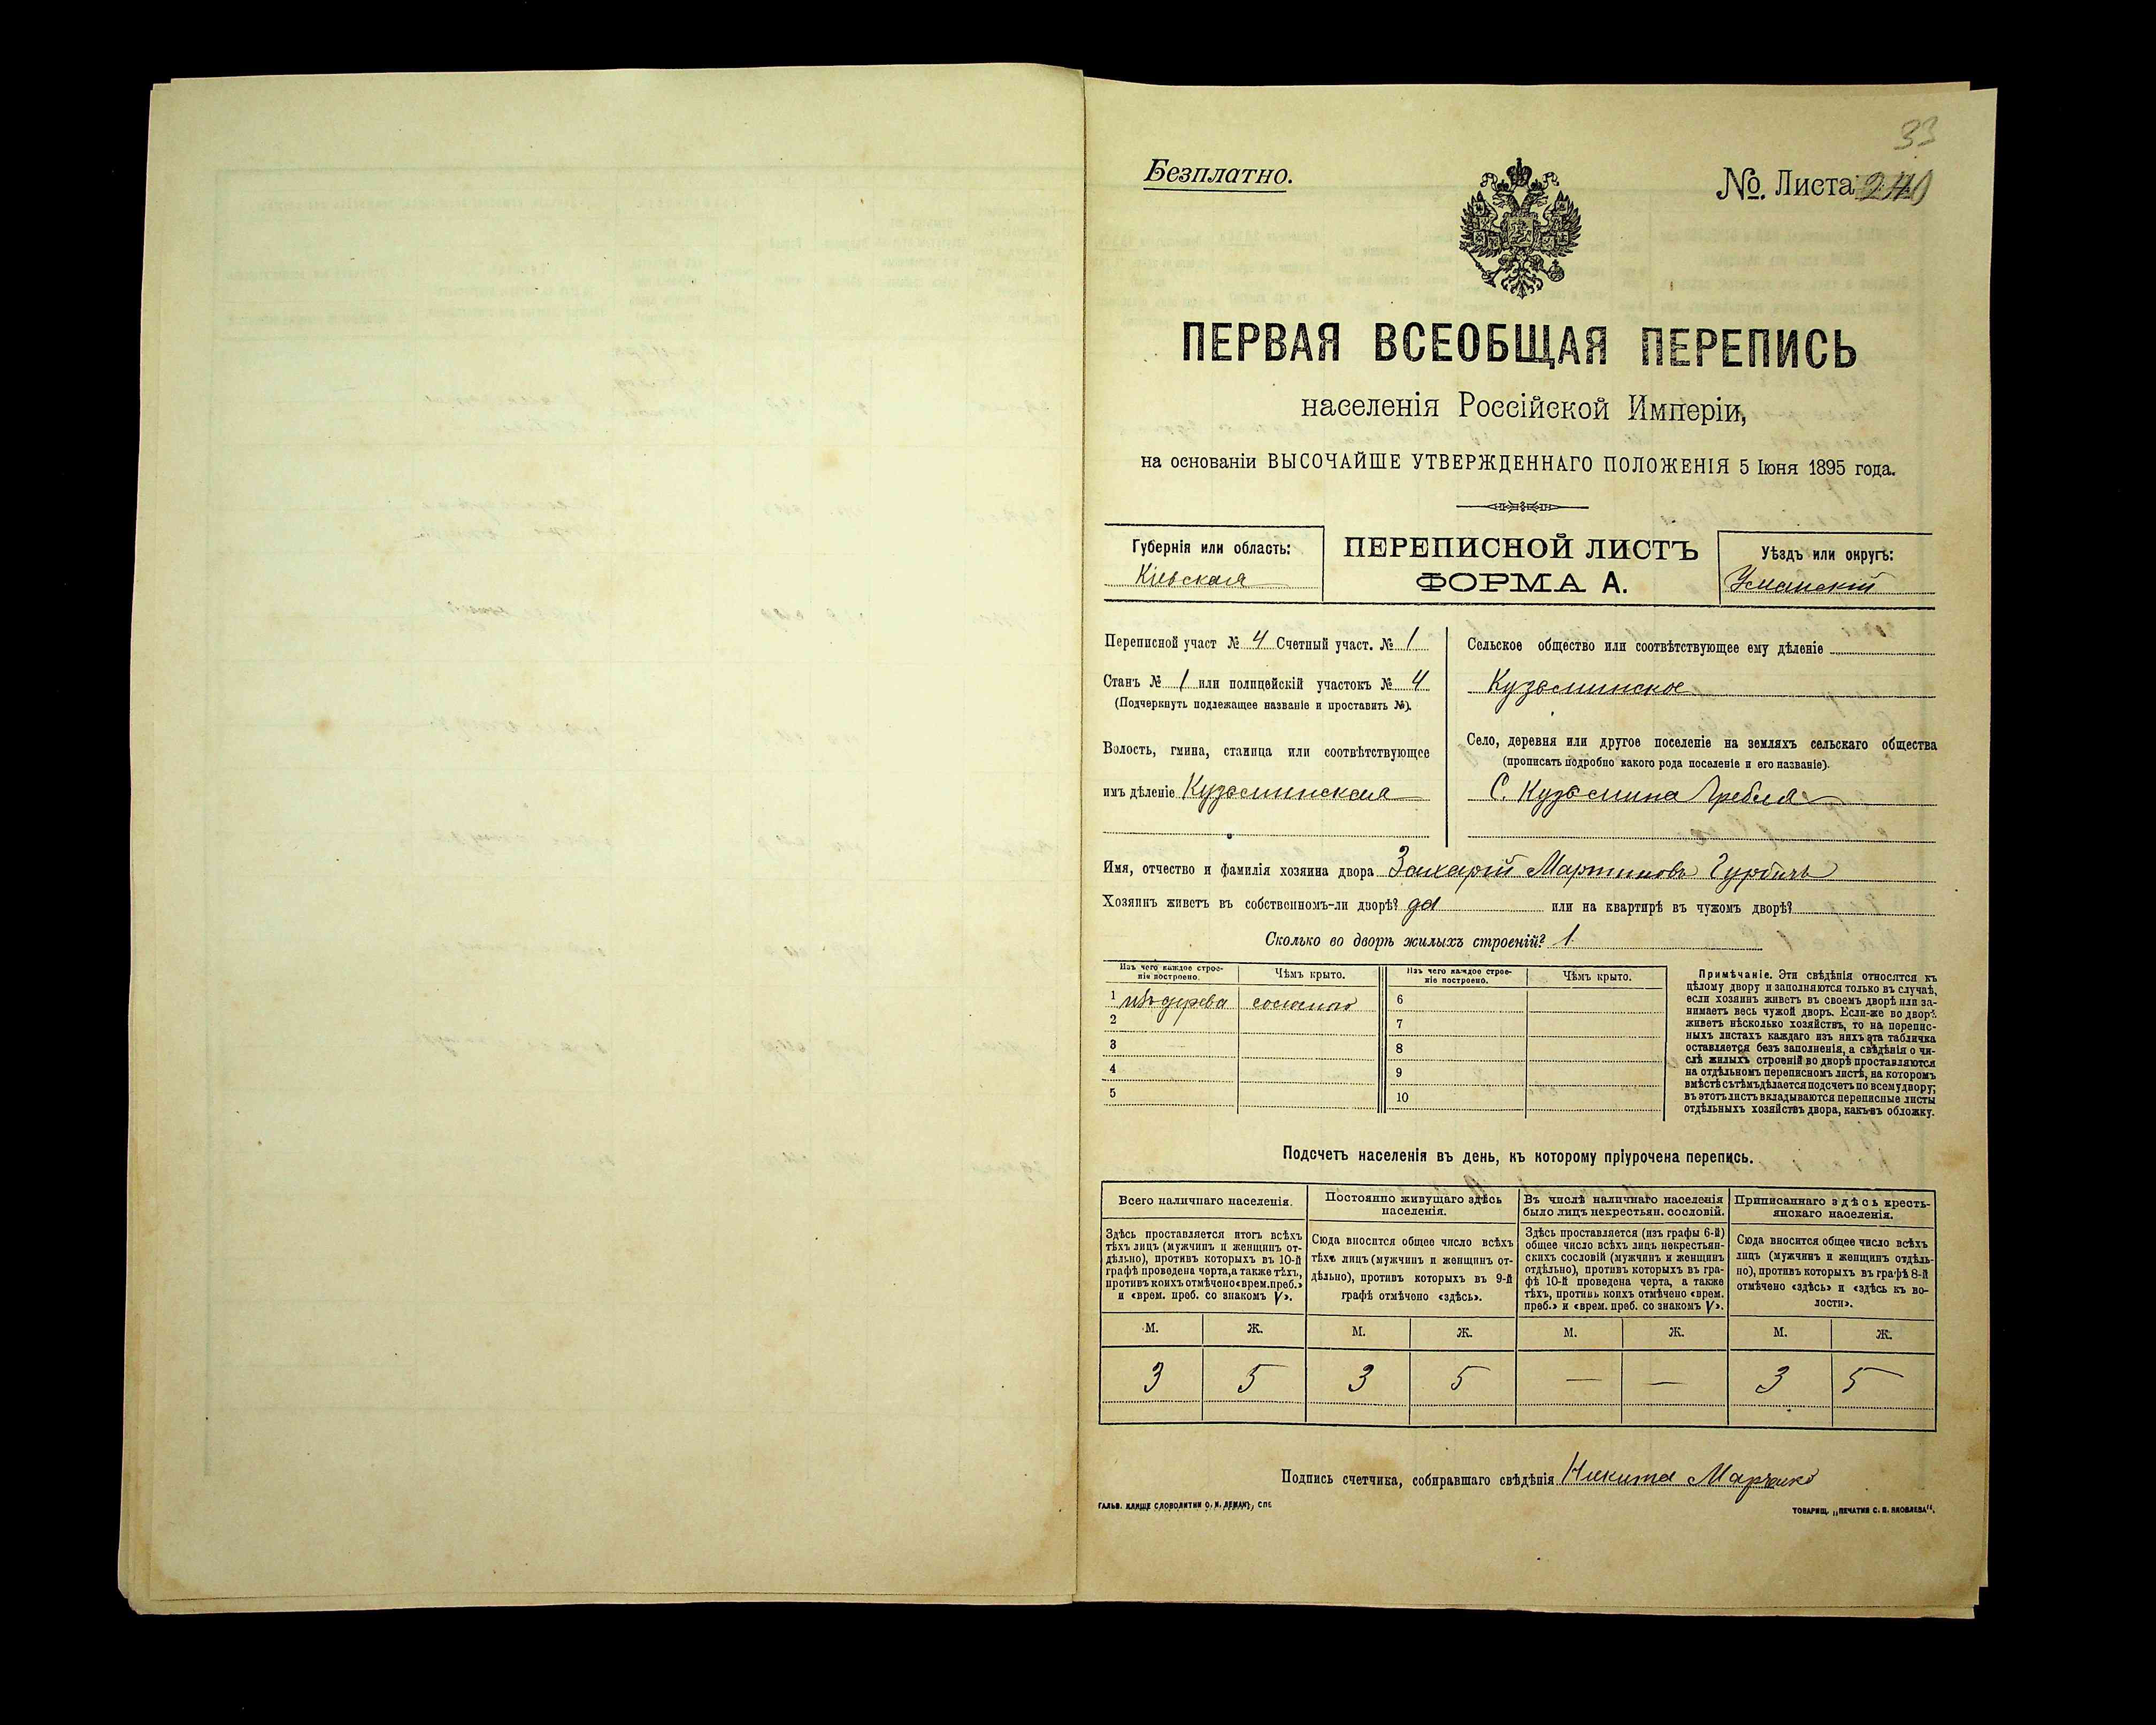 33
Безплатно.
№. Листа
ПЕРВАЯ ВСЕОБЩАЯ ПЕРЕПИСЬ
населенія Россійской Имперіи,
на основаніи ВЫСОЧАЙШЕ УТВЕРЖДЕННАГО ПОЛОЖЕНІЯ 5 Іюня 1895 года.
Губернія или область:
Кіевская
ПЕРЕПИСНОЙ ЛИСТЪ
ФОРМА А.
Уѣздъ или округъ:
Уманскій
Переписной участ № 4 Счетный участ. № 1
Станъ № 1 или полицейскій участокъ № 4
(Подчеркнуть подлежащее названіе и проставить №).
Волость, гмина, станица или соотвѣтствующее
имъ дѣленіе Кузьминская
Сельское общество или соотвѣтствующее ему дѣленіе
Кузьминское
Село, деревня или другое поселеніе на земляхъ сельскаго общества
(прописать подробно какого рода поселеніе и его названіе).
С. Кузьмина Гребля
Имя, отчество и фамилія хозяина двора Захарій Мартиновъ
Хозяинъ живетъ въ собственномъ-ли дворѣ? да или на квартирѣ въ чужомъ дворѣ?
Сколько во дворѣ жилыхъ строеній? 1.
Изъ чего каждое строе-
ніе построено.
Чѣмъ крыто.
Изъ чего каждое строе-
ніе построено.
Чѣмъ крыто.
1 изъ дерева соломою 6
2 7
3 8
4 9
5 10
Примѣчаніе. Эти свѣдѣнія относятся къ
цѣлому двору и заполняются только въ случаѣ,
если хозяинъ живетъ въ своемъ дворѣ или за-
нимаетъ весь чужой дворъ. Если-же во дворѣ
живетъ нѣсколько хозяйствъ, то на перепис-
ныхъ листахъ каждаго изъ нихъ эта табличка
оставляется безъ заполненія, а свѣдѣнія о чи-
слѣ жилыхъ строеній во дворѣ проставляются
на отдѣльномъ переписномъ листѣ, на которомъ
вмѣстѣ съ тѣмъ дѣлается подсчетъ по всему двору;
въ этотъ листъ вкладываются переписные листы
отдѣльныхъ хозяйствъ двора, какъ въ обложку.
Подсчетъ населенія въ день, къ которому пріурочена перепись.
Всего наличнаго населенія.
Здѣсь проставляется итогъ всѣхъ
тѣхъ лицъ (мужчинъ и женщинъ от-
дѣльно), противъ которыхъ въ 10-й
графѣ проведена черта, а также тѣхъ,
противъ коихъ отмѣчено «врем. преб.»
и «врем. преб. со знакомъ V».
Постоянно живущаго здѣсь
населенія.
Сюда вносится общее число всѣхъ
тѣхъ лицъ (мужчинъ и женщинъ от-
дѣльно), противъ которыхъ въ 9-й
графѣ отмѣчено «здѣсь».
Въ числѣ наличнаго населенія
было лицъ некрестьян. сословій.
Здѣсь проставляется (изъ графы 6-й)
общее число всѣхъ лицъ некрестьян-
скихъ сословій (мужчинъ и женщинъ
отдѣльно), противъ которыхъ въ гра-
фѣ 10-й проведена черта, а также
тѣхъ, противъ коихъ отмѣчено «врем.
преб.» и «врем. преб. со знакомъ V».
Приписаннаго здѣсь кресть-
янскаго населенія.
Сюда вносится общее число всѣхъ
лицъ (мужчинъ и женщинъ отдѣль-
но), противъ которыхъ въ графѣ 8-й
отмѣчено «здѣсь» и «здѣсь къ во-
лости».
М. Ж. М. Ж. М. Ж. М. Ж.
3 5 3 5 — — 3 5
Подпись счетчика, собиравшаго свѣдѣнія Никита Марченко
ГАЛЬВ. КЛИШЕ СЛОВОЛИТНИ О. И. ЛЕМАНЪ, СПБ
ТОВАРИЩ. „ПЕЧАТНЯ С. П. ЯКОВЛЕВА".